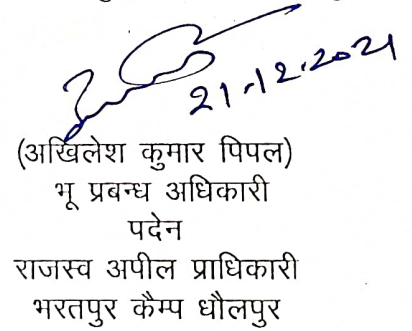 21.12.2021
(अखिलेश कुमार पिपल)
भू प्रबन्ध अधिकारी
पदेन
राजस्व अपील प्राधिकारी
भरतपुर कैम्प धौलपुर